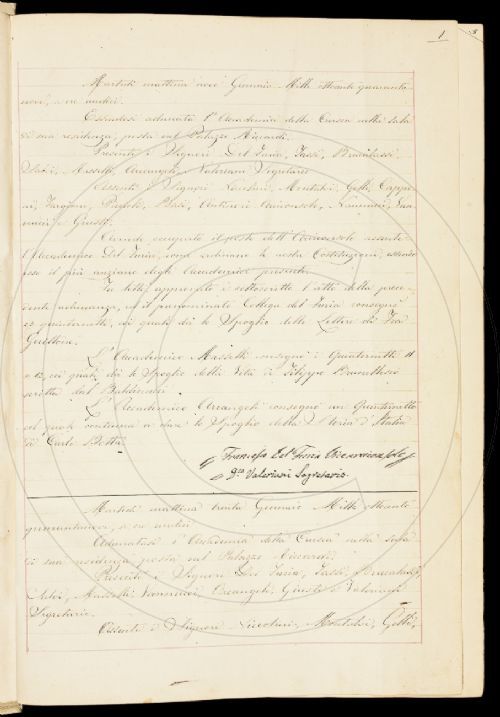 1
Martedì mattina nove Gennaio Mille ottocento quaranta-
nove, a ore undici.
Essendosi adunata l'Accademia della Crusca nella sala
di sua residenza, posta nel Palazzo Riccardi.
Presenti i Signori Del Furia,
Masselli, Arcangeli, e Valeriani Segretario
Assenti i Signori Niccolini, Montalvi, Gotti, Cappo-
ni, Targioni,
e Giusti.
Avendo occupato il posto dell'Arciconsolo assente
l'Accademico Del Furia, come ordinano le nostre Costituzioni, essendo
esso il più anziano degli Accademici presenti.
Fu letto, approvato e sottoscritto l'atto della prece-
dente adunanza, e il parimente Collega del Furia consegnò
quinternetti, nei quali dà lo Spoglio delle Lettere di Fra
Guittone.
L'Accademico Masselli consegnò i Quinternetti 11
e 12, nei quali dà lo Spoglio della Vita di Filippo Brunellesco
scritta dal Baldinucci
L'Accademico Arcangeli consegnò un Quinternetto
nel quale continua a dare lo Spoglio della Storia d'Italia
di Carlo Botta.
Francesco Del Furia Vicearciconsolo
Valeriani Segretario
Martedì mattina trenta Gennaio Mille ottocento
a ore undici
Adunatasi l'Accademia della Crusca nella sala
di sua residenza posta nel Palazzo Riccardi.
Presenti i Signori Del Furia,
Masselli, Vannucci, Arcangeli, Giusti e Valeriani
Segretario.
Assenti i Signori Niccolini, Montalvi, Gotti,